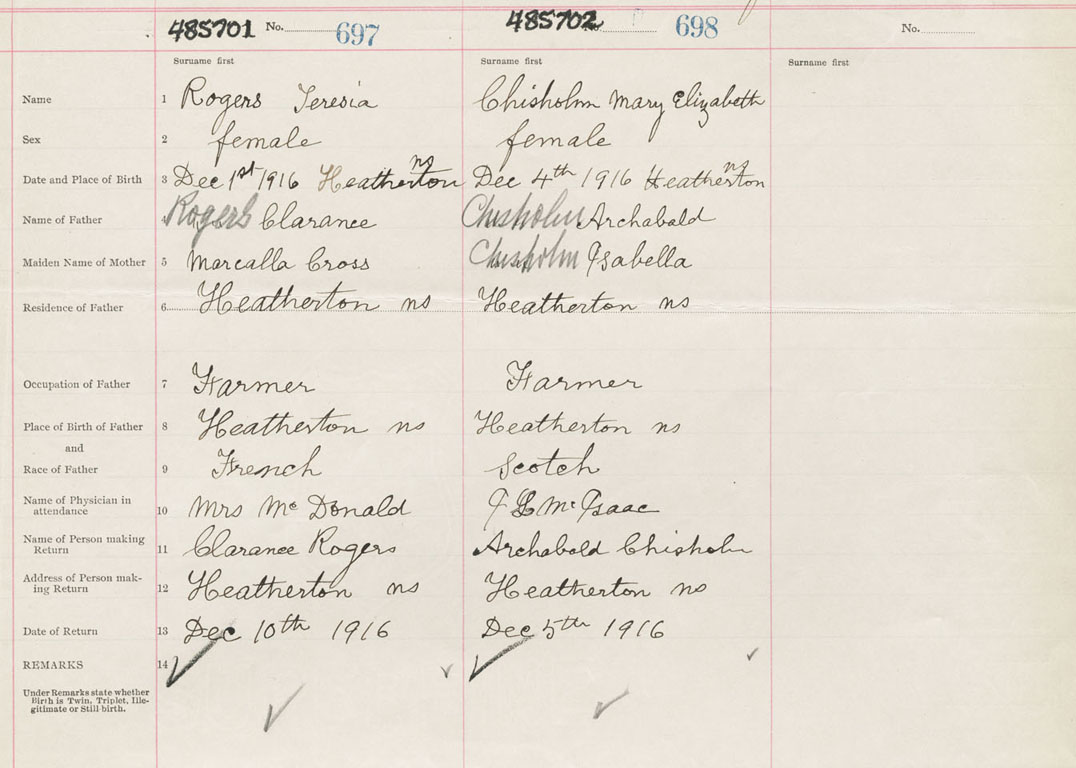 485701 No. 697 485702 No. 698 No.
Surname first Surname first Surname first
Name 1 Rogers Teresia Chisholm Mary Elizabeth
Sex 2 female female
Date and Place of Birth 3 Dec 1st 1916 Heatherton ns Dec 4th 1916 Heatherton ns
Name of Father 4 Rogers Clarance Chisholm Archabald
Maiden Name of Mother 5 Marcalla Cross Chisholm Isabella
Residence of Father 6 Heatherton ns Heatherton ns
Occupation of Father 7 Farmer Farmer
Place of Birth of Father 8 Heatherton ns Heatherton ns
and
Race of Father 9 French Scotch
Name of Physician in
attendance 10 Mrs McDonald McIsaac
Name of Person making
Return 11 Clarance Rogers Archabald Chisholm
Address of Person mak-
ing Return 12 Heatherton ns Heatherton ns
Date of Return 13 Dec 10th 1916 Dec 5th 1916
REMARKS 14
Under Remarks state whether
Birth is Twin, Triplet, Ille-
gitimate or Still-birth.